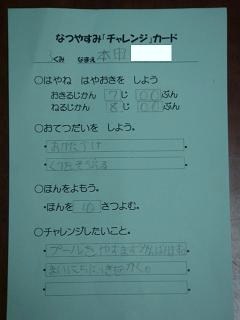 なつやすみ「チャレンジ」カード
くみ なまえ 本田
○はやね はやおきを しよう
おきるじかん 7 じ 00 ぷん
ねるじかん 8 じ 00 ぷん
○おてつだいを しよう。
おかたづけ
くつをそろえる
○ほんをよもう。
・ほんを さつよむ。
○チャレンジしたいこと。
プールを やすまずがんばる
まいにち